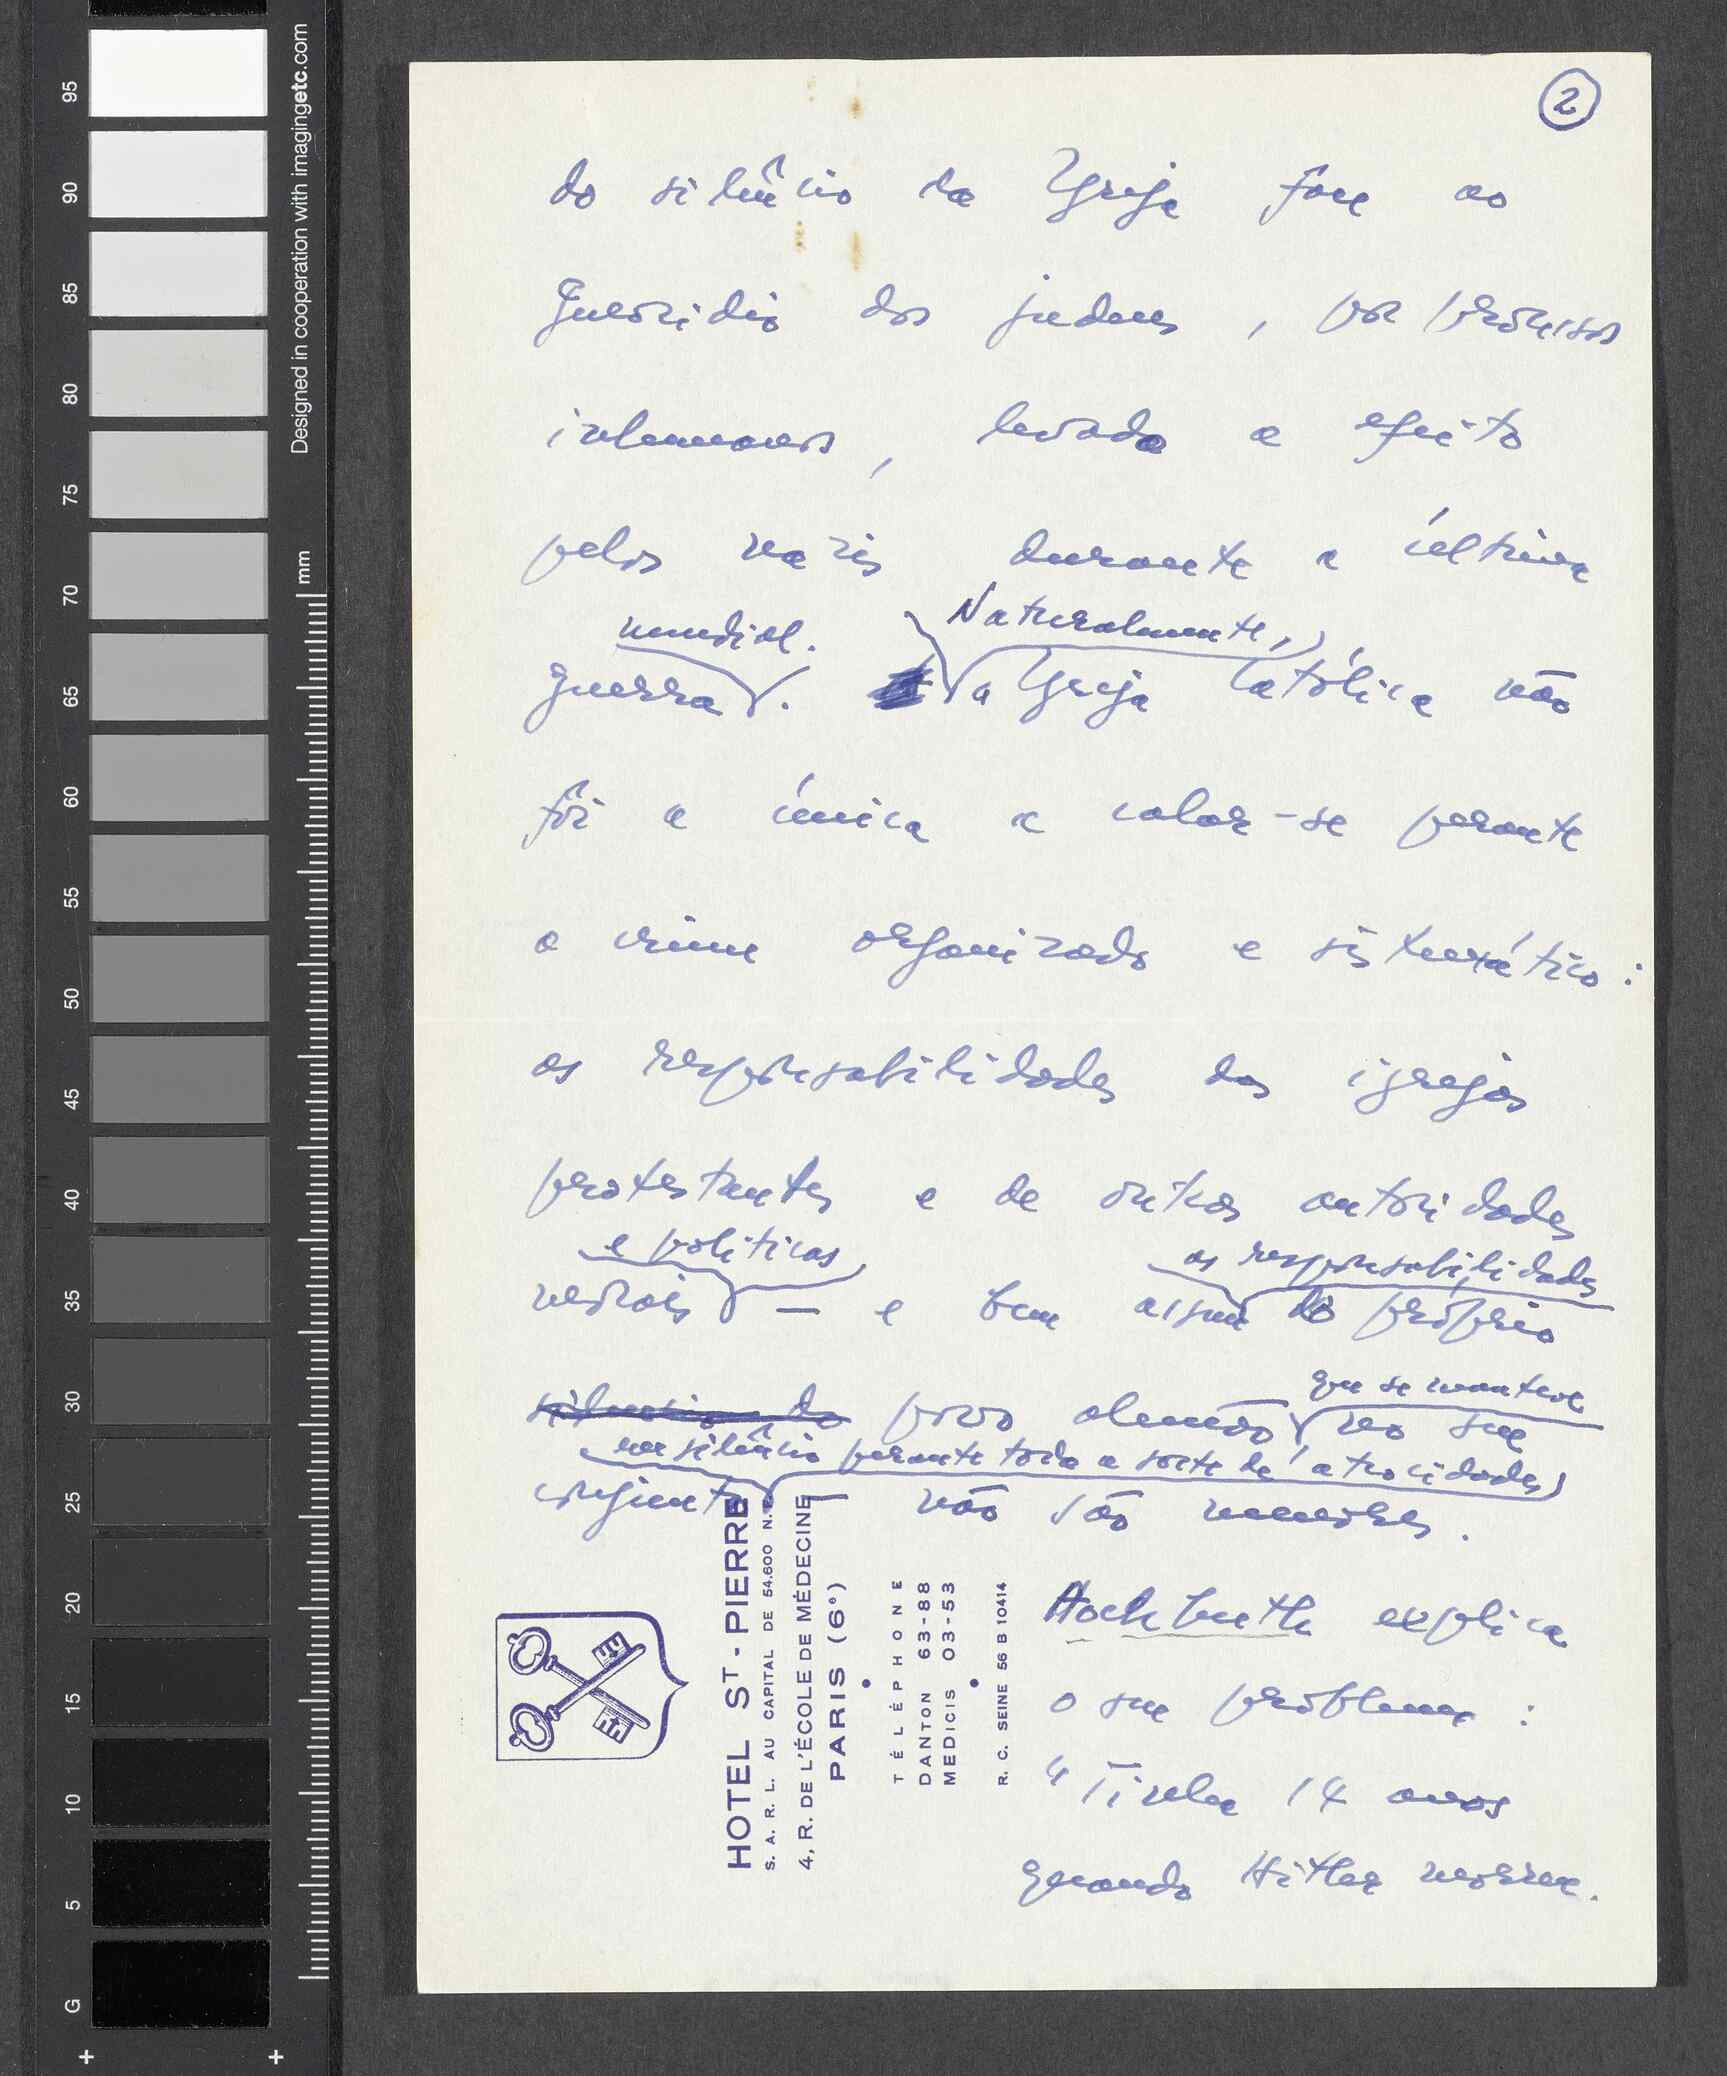 2
do silêncio da Igreja face ao
genocídio dos judeus, por processos
inhumanos, levado a efeito
pelos nazis durante a última
mundial. Naturalmente,
guerra. a Igreja Católica não
fôi a única a calar-se perante
o crime organizado e sistemático:
as responsabilidades das igrejas
protestantes e de outras autoridades
e políticas as responsabilidades
morais — e bem assim do próprio
que se manteve
povo alemão no seu
em silêncio perante toda a sorte de atrocidades
conjunto — não são menores.
Hochhuth explica
o seu problema:
"Tinha 14 anos
quando Hitler morreu.
HOTEL ST-PIERRE
S. A. R. L. AU CAPITAL DE 54.600 N.F.
4, R. DE L'ÉCOLE DE MÉDECINE
PARIS (6e)
TÉLÉPHONE
DANTON 63-88
MEDICIS 03-53
R. C. SEINE 56 B 10414
Designed in cooperation with imagingetc.com
mm
95
90
85
80
75
70
65
60
55
50
45
40
35
30
25
20
15
10
5
G